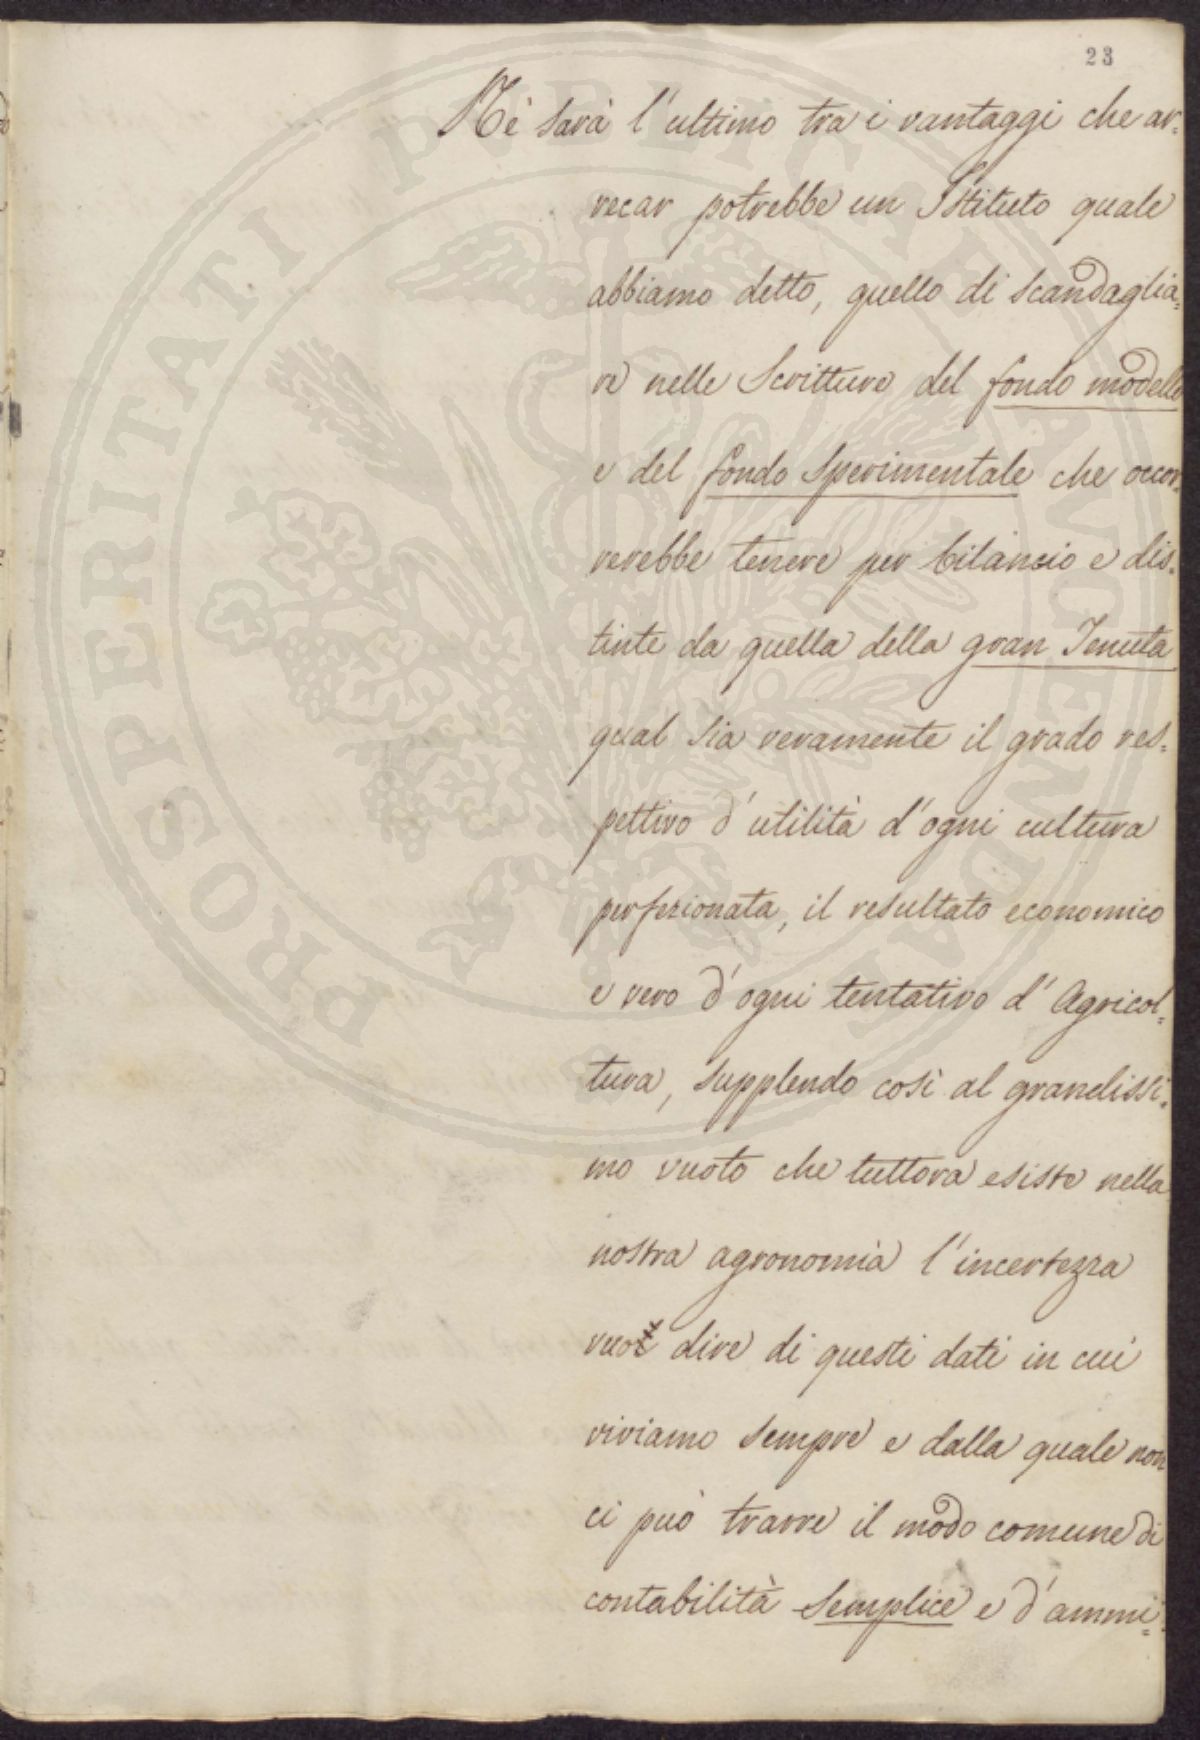 23
Nè sarà l'ultimo tra i vantaggi che ar=
recar potrebbe un Istituto quale
abbiamo detto, quello di scandaglia=
re nelle Scritture del fondo modello
e del fondo sperimentale che occor=
rerebbe tenere per bilancio e dis=
tinte da quella della gran Tenuta
qual sia veramente il grado res=
pettivo d'utilità d'ogni cultura
perfezionata, il resultato economico
e vero d'ogni tentativo d'Agricol=
tura, supplendo così al grandissi=
mo vuoto che tuttora esiste nella
nostra agronomia l'incertezza
vuol dire di questi dati in cui
viviamo sempre e dalla quale non
ci può trarre il modo comune di
contabilità semplice e d'ammi=
PROSPERITATI PUBLICAE AUGENDAE